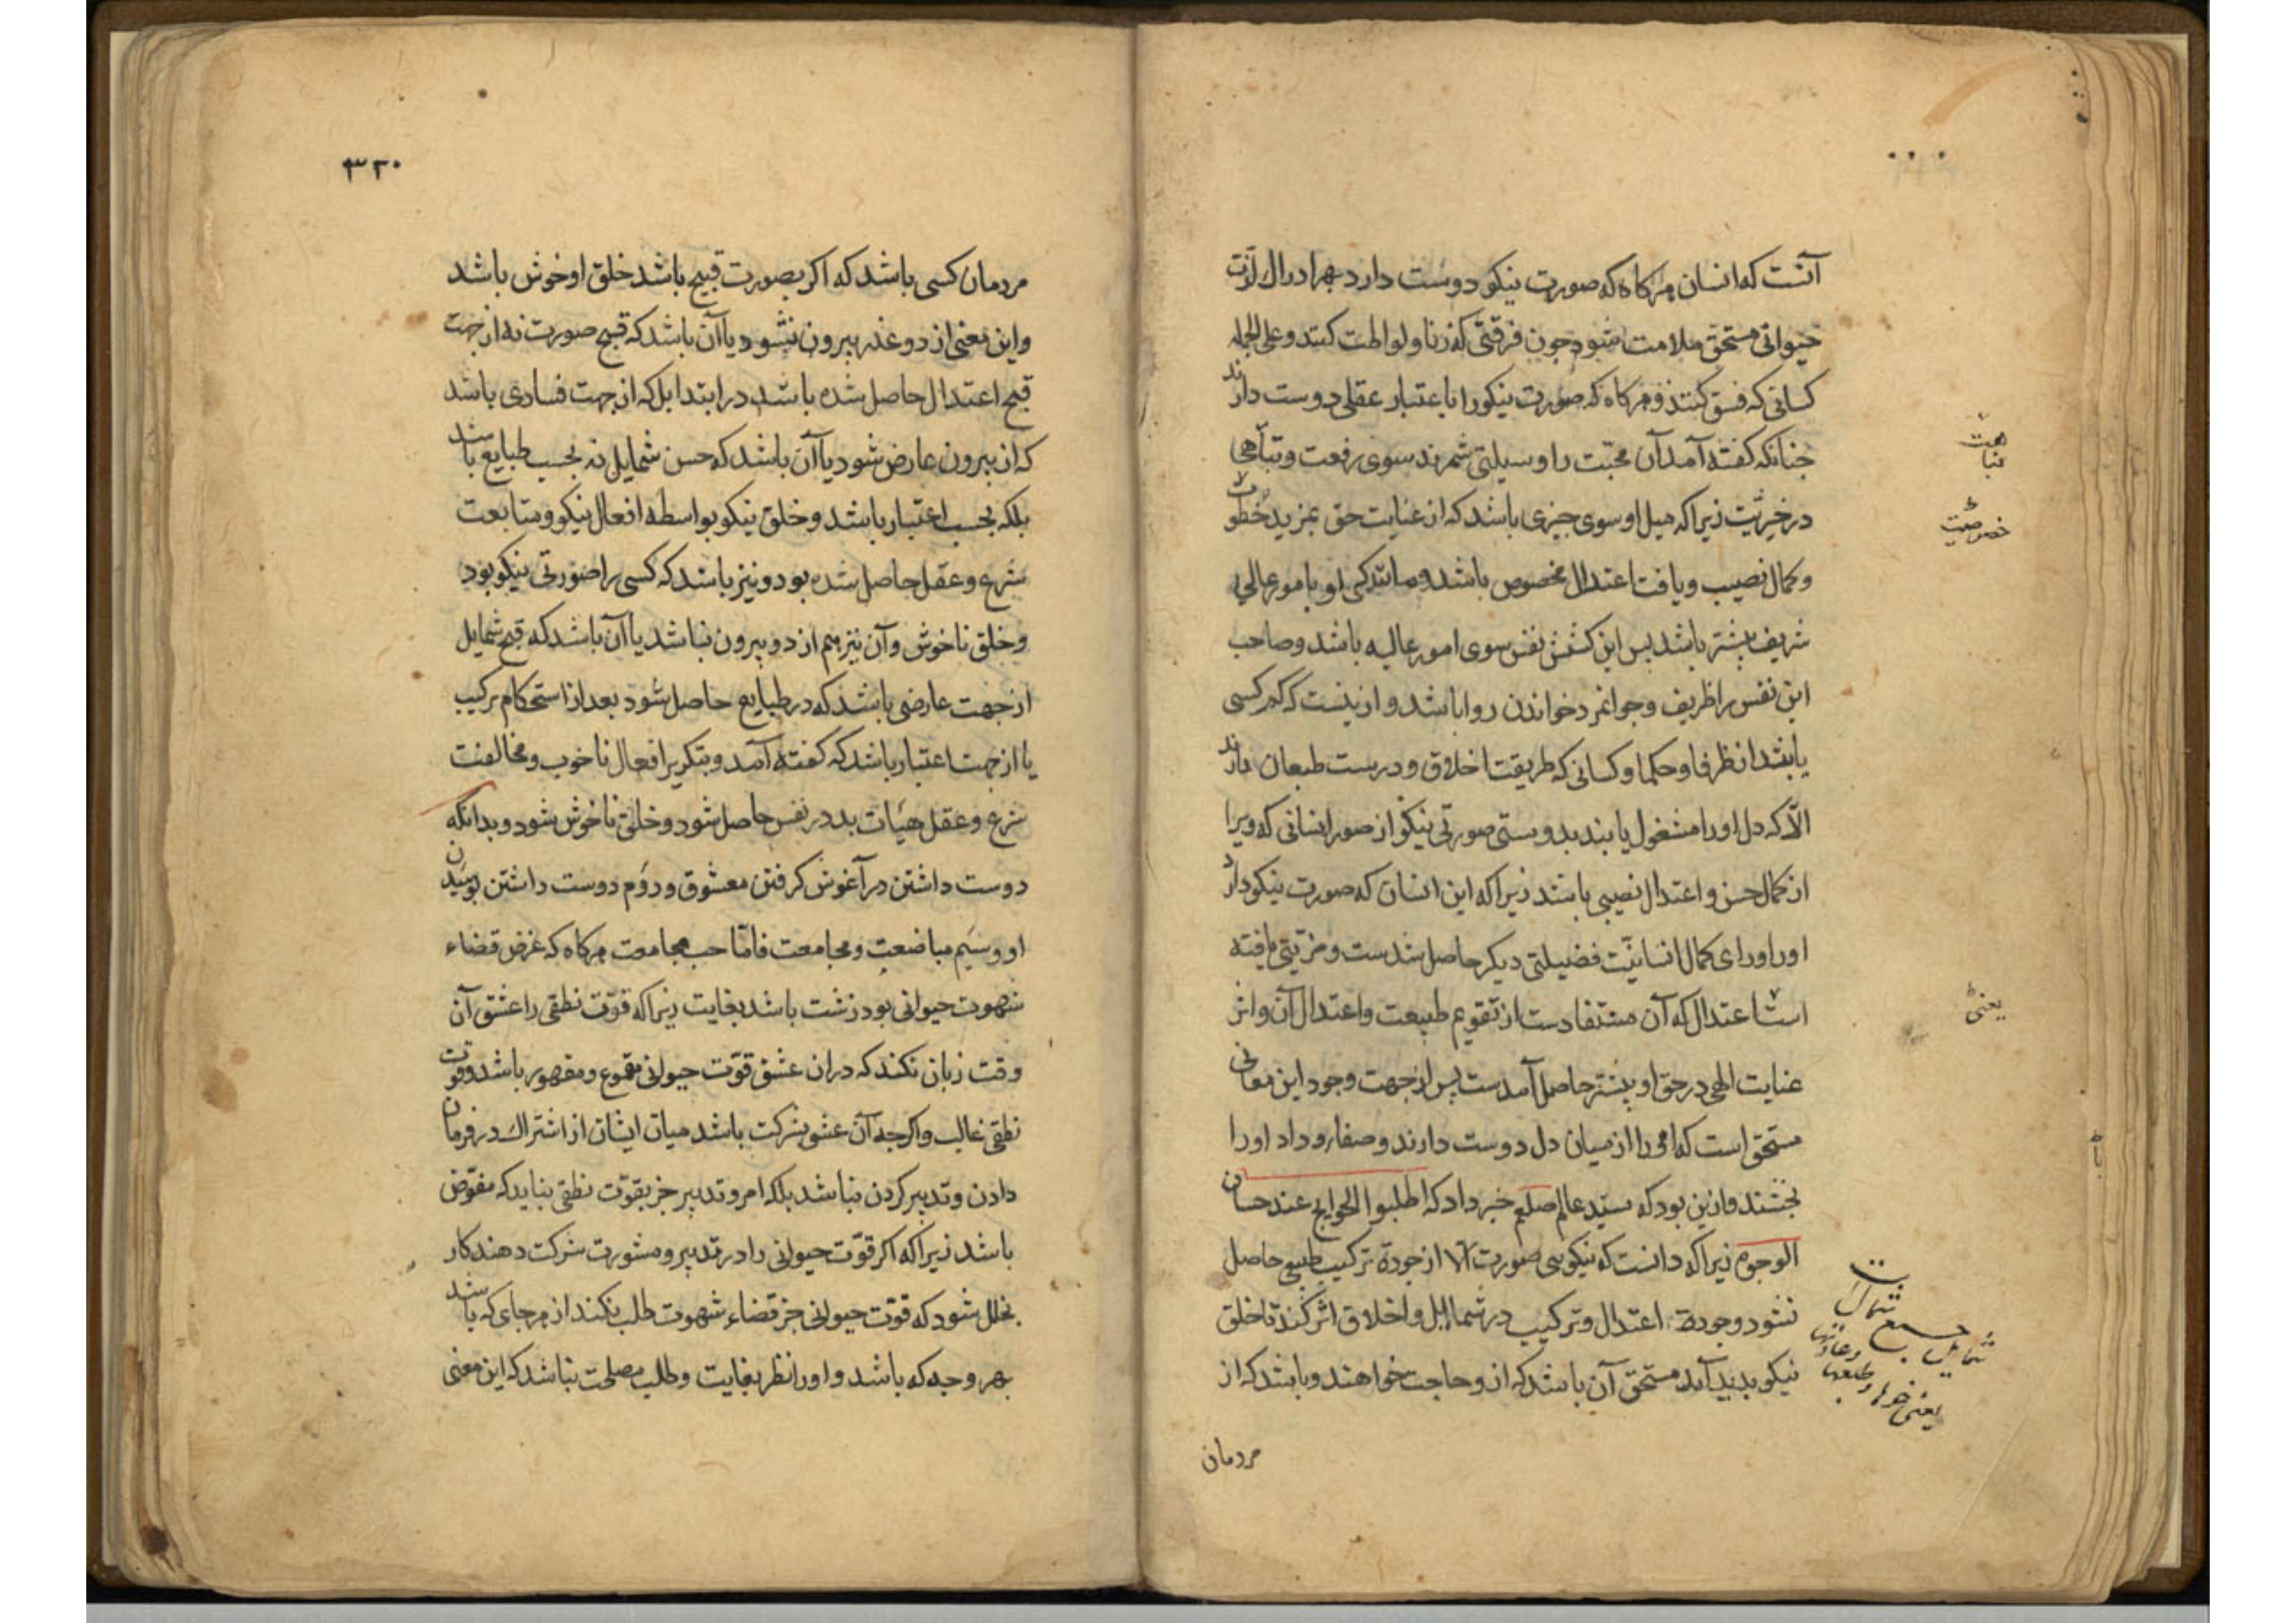 آنست که انسان هرکاه که صورت نیکو دوست دارد بهر ادراک لذت
حیوانی مستحق ملامت شود چون فرقتی که زنا و لواطت کنند و علی الجمله
کسانی که فسق کنند و هرکاه که صورت نیکو را باعتبار عقلی دوست دارند
چنانکه کفته آمد آن محبّت را وسیلتی شمرند سوی رفعت و تباهی
در خیریّت زیرا که میل او سوی چیزی باشد که از عنایت حق بمزید
وکمال نصیب و یافت اعتدال مخصوص باشد و مانندکی او بامور عالی
شریف بیشتر باشد پس این کشش نفس سوی امور عالیه باشد و صاحب
این نفس را ظریف و جوانمرد خواندن روا باشد و ازینست که کم کسی
یابند از ظرفا و حکما و کسانی که طریقت اخلاق و درست طبعان دارند
الّا که دل او را مشغول یابند بدوستی صورتی نیکو از صور انسانی که ویرا
از کمال حسن و اعتدال نصیبی باشد زیرا که این انسان که صورت نیکو دارد
او را ورای کمال انسانیّت فضیلتی دیکر حاصل شدست و مزیّتی یافته
است اعتدال که آن مستفادست از تقویم طبیعت و اعتدال آن و اثر
عنایت الهی در حق او بیشتر حاصل آمدست پس از جهت وجود این معانی
مستحق است که او را از میان دل دوست دارند و صفاء وداد او را
بخشند و ازین بود که سیّد عالم صلعم خبر داد که اطلبوا الحوایج عند حسان
الوجوه زیرا که دانست که نیکویی صورت الا از جودة ترکیب طبیعی حاصل
نشود و جودة اعتدال و ترکیب در شمایل و اخلاق اثر کند تا خلق
نیکو بدید آید مستحق آن باشد که از و حاجت خواهند و باشد که از
مردمان
یعنی
شمایل جمع شمال است
یعنی خوها و طبعها و عادتها
۳۲۰
مردمان کسی باشد که اکر بصورت قبیح باشد خلق او خوش باشد
و این معنی از دو عذر بیرون نشود یا آن باشد که قبح صورت نه از جهت
قبح اعتدال حاصل شده باشد در ابتدا بلکه از جهت فسادی باشد
که از بیرون عارض شود یا آن باشد که حسن شمایل نه بحسب طبایع باشد
بلکه بحسب اعتبار باشد و خلق نیکو بواسطه افعال نیکو و متابعت
شرع و عقل حاصل شده بود و نیز باشد که کسی را صورتی نیکو بود
و خلق ناخوش و آن نیز هم از دو بیرون نباشد یا آن باشد که قبح شمایل
از جهت عارضی باشد که در طبایع حاصل شود بعد از استحکام ترکیب
یا از جهت اعتبار باشد که کفته آمد و بتکریر افعال ناخوب و مخالفت
شرع و عقل هیٔات بد در نفس حاصل شود و خلق ناخوش شود و بدانکه
دوست داشتن در آغوش کرفتن معشوق و دوّم دوست داشتن بوسیدن
او و سیم مباضعت و مجامعت فامّا حب مجامعت هرکاه که غرض قضاء
شهوت حیوانی بود زشت باشد بغایت زیرا که قوّت نطقی را عشق آن
وقت زیان نکند که در ان عشق قوّت حیوانی مقموع و مقهور باشد و قوت
نطقی غالب و اکرچه آن عشق بشرکت باشد میان ایشان از اشتراک در فرمان
دادن و تدبیر کردن نباشد بلکه امر و تدبیر جز بقوّت نطقی نباید که مفوّض
باشد زیرا که اکر قوّت حیوانی را در تدبیر و مشورت شرکت دهند کار
بخلل شود که قوّت حیوانی جز قضاء شهوت طلب نکند از هر جای که باشد
بهر وجه که باشد و او را نظر بغایت و طلب مصلحت نباشد که این معنی